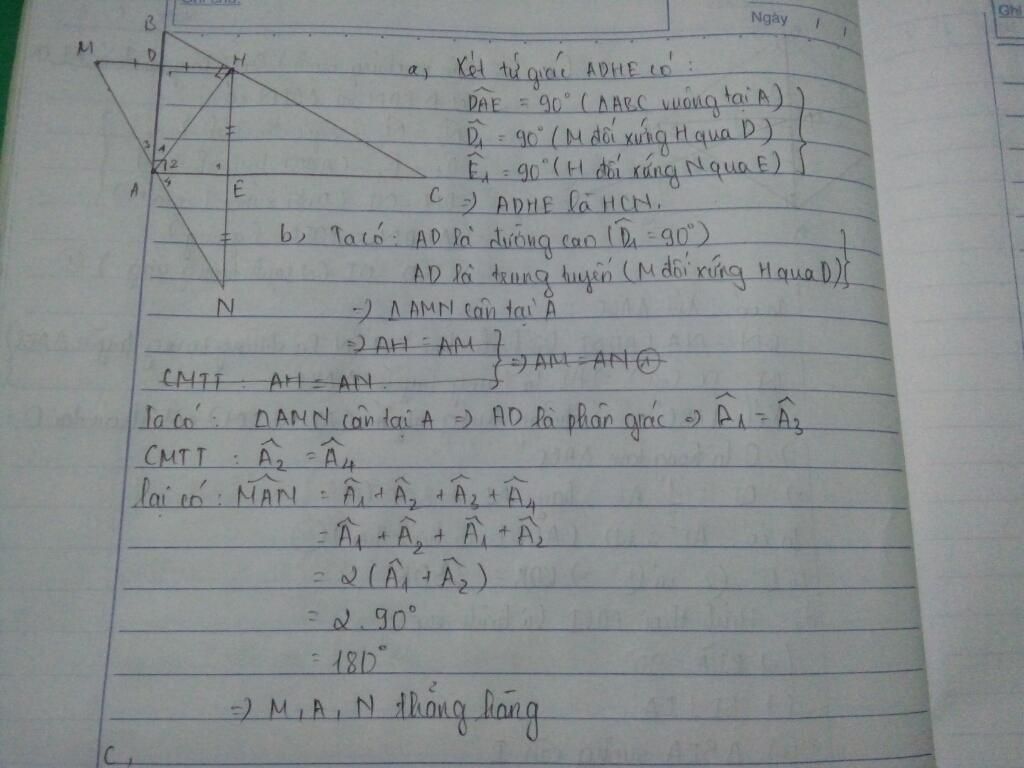 Ngày
Ghi
B
M
D
H
3 1
2
4
1
A
E
C
N
a, Xét tứ giác ADHE có :
D̂AE = 90° (ΔABC vuông tại A)
D̂₁ = 90° (M đối xứng H qua D)
Ê₁ = 90° (H đối xứng N qua E)
=> ADHE là HCN.
b, Ta có : AD là đường cao (D̂₁ = 90°)
AD là trung tuyến (M đối xứng H qua D)
=> ΔAMN cân tại A
=> AH = AM
=> AM = AN ①
CMTT : AH = AN.
Ta có : ΔAMN cân tại A => AD là phân giác => Â₁ = Â₃
CMTT : Â₂ = Â₄
lại có : M̂AN = Â₁ + Â₂ + Â₃ + Â₄
= Â₁ + Â₂ + Â₁ + Â₂
= 2 (Â₁ + Â₂)
= 2 . 90°
= 180°
=> M, A, N thẳng hàng
C,